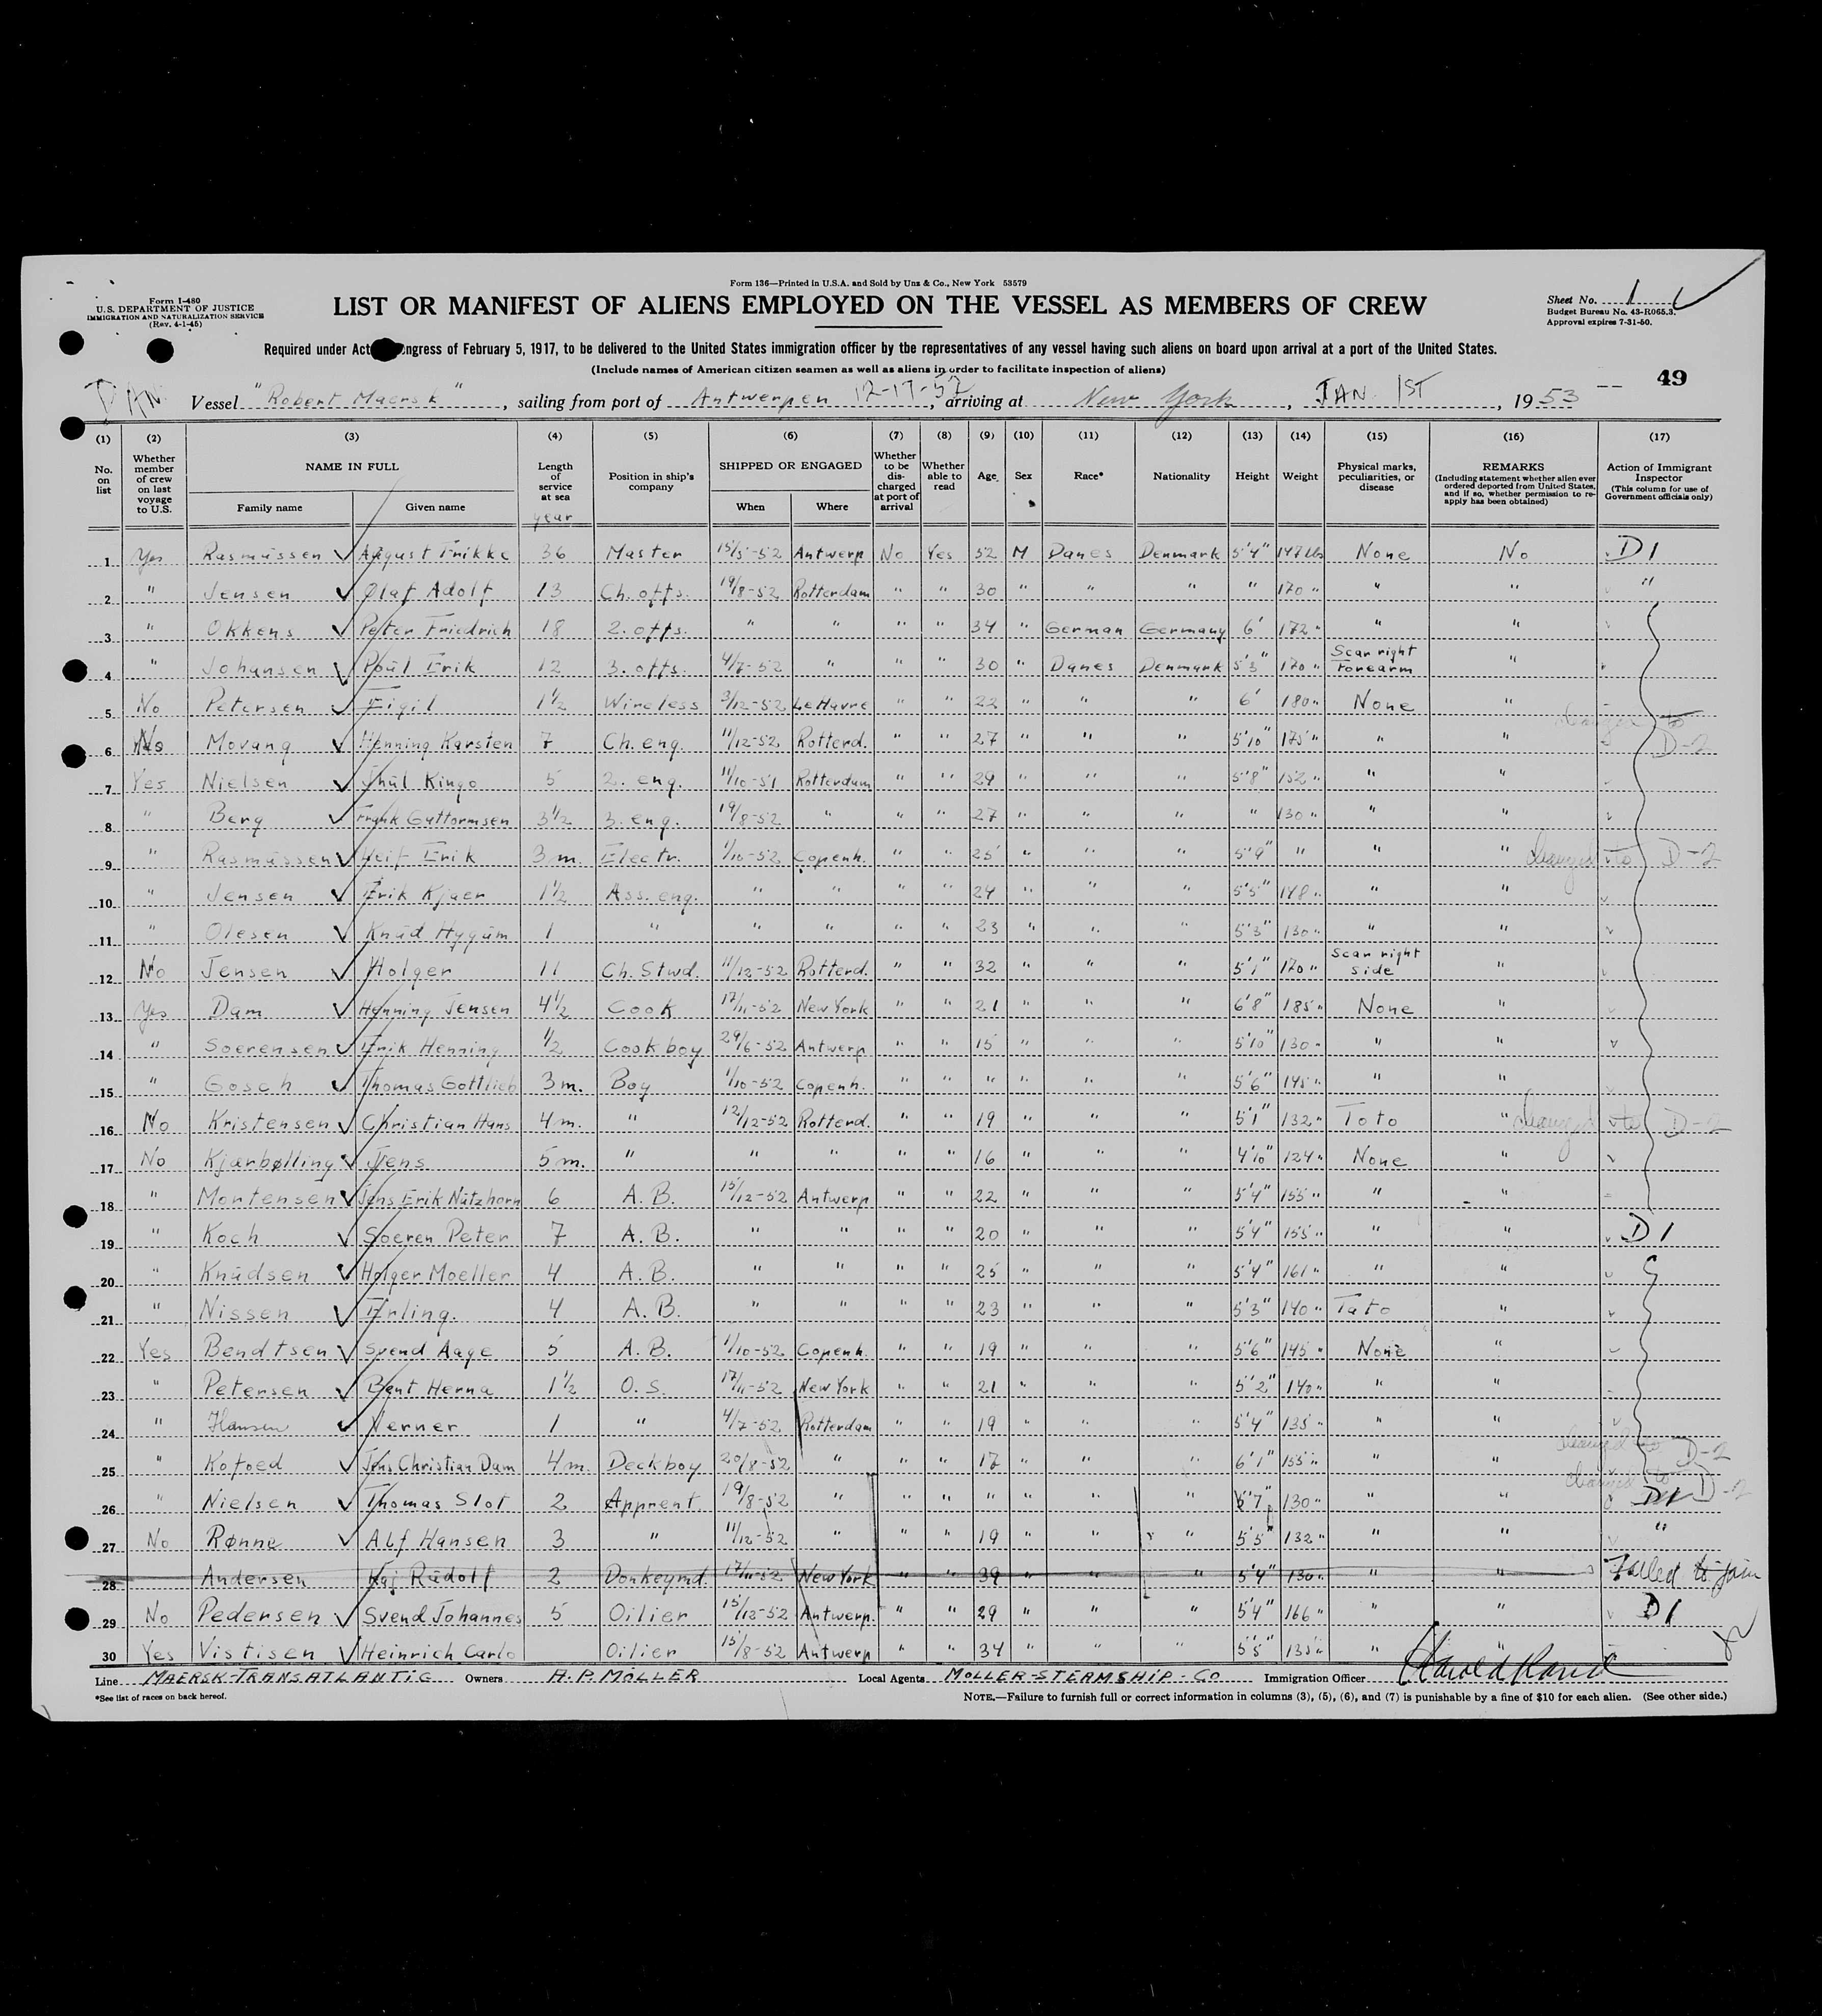 Form 136—Printed in U.S.A. and Sold by Unz & Co., New York 53579
Form I-480
U.S. DEPARTMENT OF JUSTICE
IMMIGRATION AND NATURALIZATION SERVICE
(Rev. 4-1-45)
LIST OR MANIFEST OF ALIENS EMPLOYED ON THE VESSEL AS MEMBERS OF CREW
Sheet No. 1
Budget Bureau No. 43-R065.3.
Approval expires 7-31-50.
Required under Act ngress of February 5, 1917, to be delivered to the United States immigration officer by the representatives of any vessel having such aliens on board upon arrival at a port of the United States.
(Include names of American citizen seamen as well as aliens in order to facilitate inspection of aliens)
49
DAN. Vessel "Robert Maersk", sailing from port of Antwerpen 12-17-52, arriving at New York, JAN 1ST, 1953
(1) (2) (3) (4) (5) (6) (7) (8) (9) (10) (11) (12) (13) (14) (15) (16) (17)
No. on list
Whether member of crew on last voyage to U.S.
NAME IN FULL
Family name Given name
Length of service at sea
year
Position in ship's company
SHIPPED OR ENGAGED
When Where
Whether to be discharged at port of arrival
Whether able to read
Age
Sex
Race*
Nationality
Height
Weight
Physical marks, peculiarities, or disease
REMARKS
(Including statement whether alien ever ordered deported from United States, and if so, whether permission to reapply has been obtained)
Action of Immigrant Inspector
(This column for use of Government officials only)
1 Yes Rasmussen August Frikke 36 Master 15/5-52 Antwerp No Yes 52 M Danes Denmark 5'4" 147 lbs None No D1
2 " Jensen Olaf Adolf 13 Ch. offs. 19/8-52 Rotterdam " " 30 " " " " 170 " " " "
3 " Okkens Peter Friedrich 18 2. offs. " " " " 34 " German Germany 6' 172 " " "
4 " Johansen Poul Erik 12 3. offs. 4/7-52 " " " 30 " Danes Denmark 5'3" 170 " Scar right Forearm "
5 No Petersen Eigil 1½ Wireless 3/12-52 Le Havre " " 22 " " " 6' 180 " None "
6 No Movang Henning Karsten 7 Ch. eng. 11/12-52 Rotterd. " " 27 " " " 5'10" 175 " " " changed to D-2
7 Yes Nielsen Juul Kingo 5 2. eng. 11/10-51 Rotterdam " " 29 " " " 5'8" 152 " " "
8 " Berg Frank Guttormsen 3½ 3. eng. 19/8-52 " " " 27 " " " " 130 " " "
9 " Rasmussen Leif Erik 3 m. Electr. 1/10-52 Copenh. " " 25 " " " 5'9" " " " changed to D-2
10 " Jensen Erik Kjaer 1½ Ass. eng. " " " " 24 " " " 5'5" 148 " " "
11 " Olesen Knud Hygum 1 " " " " " 23 " " " 5'3" 130 " " "
12 No Jensen Holger 11 Ch. Stwd. 11/12-52 Rotterd. " " 32 " " " 5'1" 170 " Scar right side "
13 Yes Dam Henning Jensen 4½ Cook 17/11-52 New York " " 21 " " " 6'8" 185 " None "
14 " Soerensen Erik Henning ½ Cook boy 29/6-52 Antwerp " " 15 " " " 5'10" 130 " " "
15 " Gosch Thomas Gottlieb 3 m. Boy 1/10-52 Copenh. " " " " " " 5'6" 145 " " "
16 No Kristensen Christian Hans 4 m. " 12/12-52 Rotterd. " " 19 " " " 5'1" 132 " Toto " changed to D-2
17 No Kjærbølling Jens 5 m. " " " " " 16 " " " 4'10" 124 " None "
18 " Mortensen Jens Erik Nutzhorn 6 A.B. 15/12-52 Antwerp " " 22 " " " 5'4" 155 " " "
19 " Koch Soeren Peter 7 A.B. " " " " 20 " " " 5'4" 155 " " " D1
20 " Knudsen Holger Moeller 4 A.B. " " " " 25 " " " 5'4" 161 " " "
21 " Nissen Erling. 4 A.B. " " " " 23 " " " 5'3" 140 " Tato "
22 Yes Bendtsen Svend Aage 5 A.B. 1/10-52 Copenh. " " 19 " " " 5'6" 145 " None "
23 " Petersen Bent Herna 1½ O.S. 17/11-52 New York " " 21 " " " 5'2" 140 " " "
24 " Hansen Verner 1 " 4/7-52 Rotterdam " " 19 " " " 5'4" 135 " " "
25 " Kofoed Jens Christian Dam 4 m. Deckboy 20/8-52 " " " 17 " " " 6'1" 155 " " " changed to D-2
26 " Nielsen Thomas Slot 2 Apprent. 19/8-52 " " " " " " " 5'7" 130 " " " changed to D1 D-2
27 No Rønne Alf Hansen 3 " 11/12-52 " " " 19 " " " 5'5" 132 " " " "
28 Andersen Kaj Rudolf 2 Donkeymd. 17/11-52 New York " " 39 " " " 5'4" 130 " " " Failed to join
29 No Pedersen Svend Johannes 5 Oilier 15/12-52 Antwerp. " " 29 " " " 5'4" 166 " " " D1
30 Yes Vistisen Heinrich Carlo Oilier 15/8-52 Antwerp " " 34 " " " 5'5" 135 " " "
Line MAERSK-TRANSATLANTIC Owners A.P. MÖLLER Local Agents MOLLER-STEAMSHIP-CO Immigration Officer
*See list of races on back hereof.
NOTE.—Failure to furnish full or correct information in columns (3), (5), (6), and (7) is punishable by a fine of $10 for each alien. (See other side.)